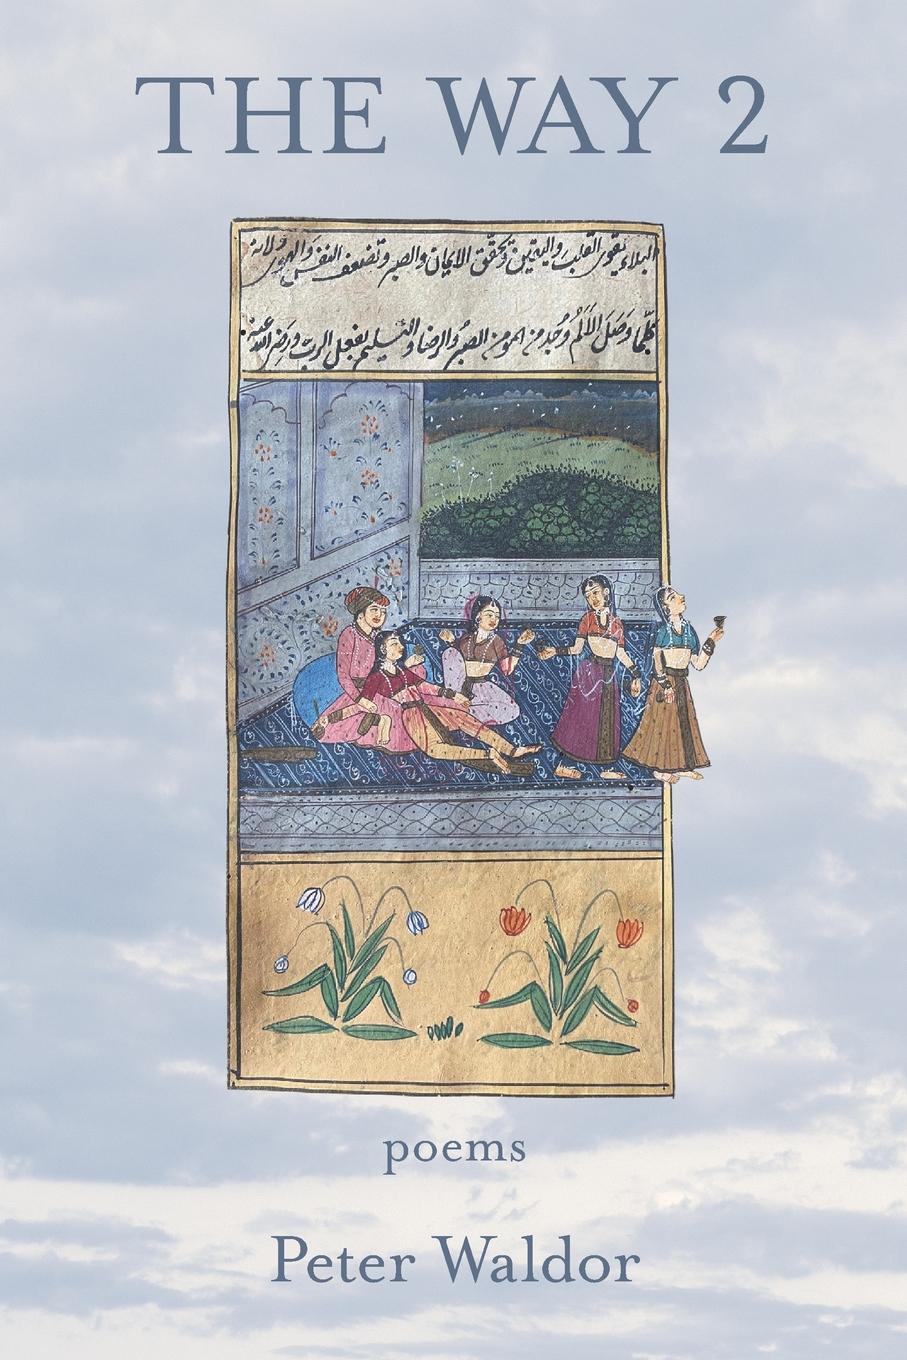 THE WAY 2
البلاء يقوى القلب واليقين وتحقق الايمان والصبر وتضعف النفس والهوى ولانه
كلما وصل الالم وجد من المومن الصبر والرضا والتسليم بفعل الرب ورضى الله عنه
poems
Peter Waldor